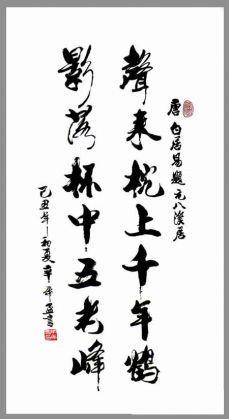 唐 白居易題元八溪居
聲來枕上千年鶴
影落杯中五老峰
己丑年初夏辛